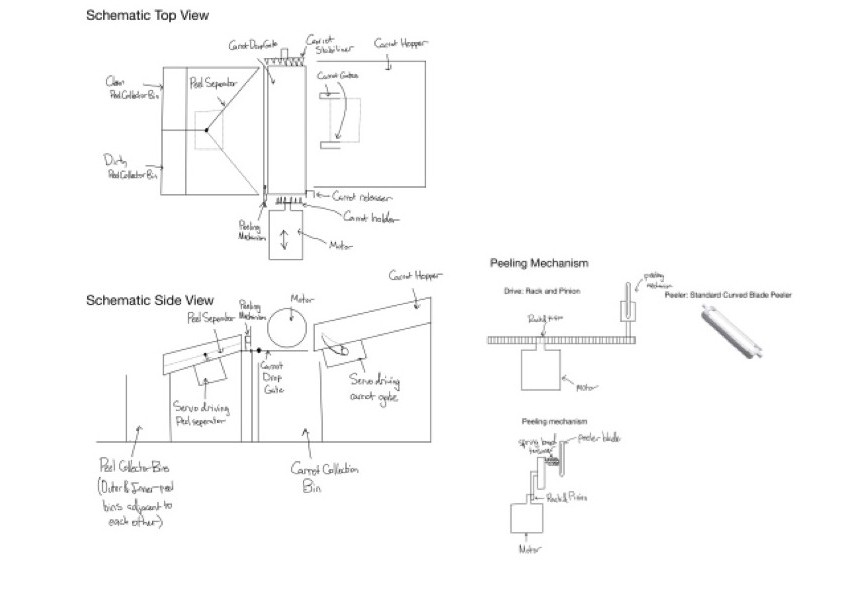 Schematic Top View
Carrot Drop Gate
Carrot
Stabiliser
Carrot Hopper
Clean
Peel Collector Bin
Peel Separator
Carrot Gates
Dirty
Peel Collector Bin
Carrot releaser
Carrot holder
Peeling
Mechanism
Motor
Schematic Side View
Carrot Hopper
Peel Separator
Peeling
Mechanism
Motor
Carrot
Drop
Gate
Servo driving
Peel separator
Servo driving
carrot gate
Peel Collector Bins
(Outer & Inner-peel
bins adjacent to
each other)
Carrot Collection
Bin
Peeling Mechanism
Drive: Rack and Pinion
peeling
mechanism
Peeler: Standard Curved Blade Peeler
Rack & Pinion
Motor
Peeling mechanism
spring based
peeler blade
Rack & Pinion
Motor